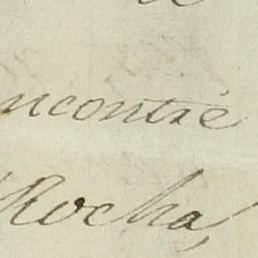 ncontré
Rocha,